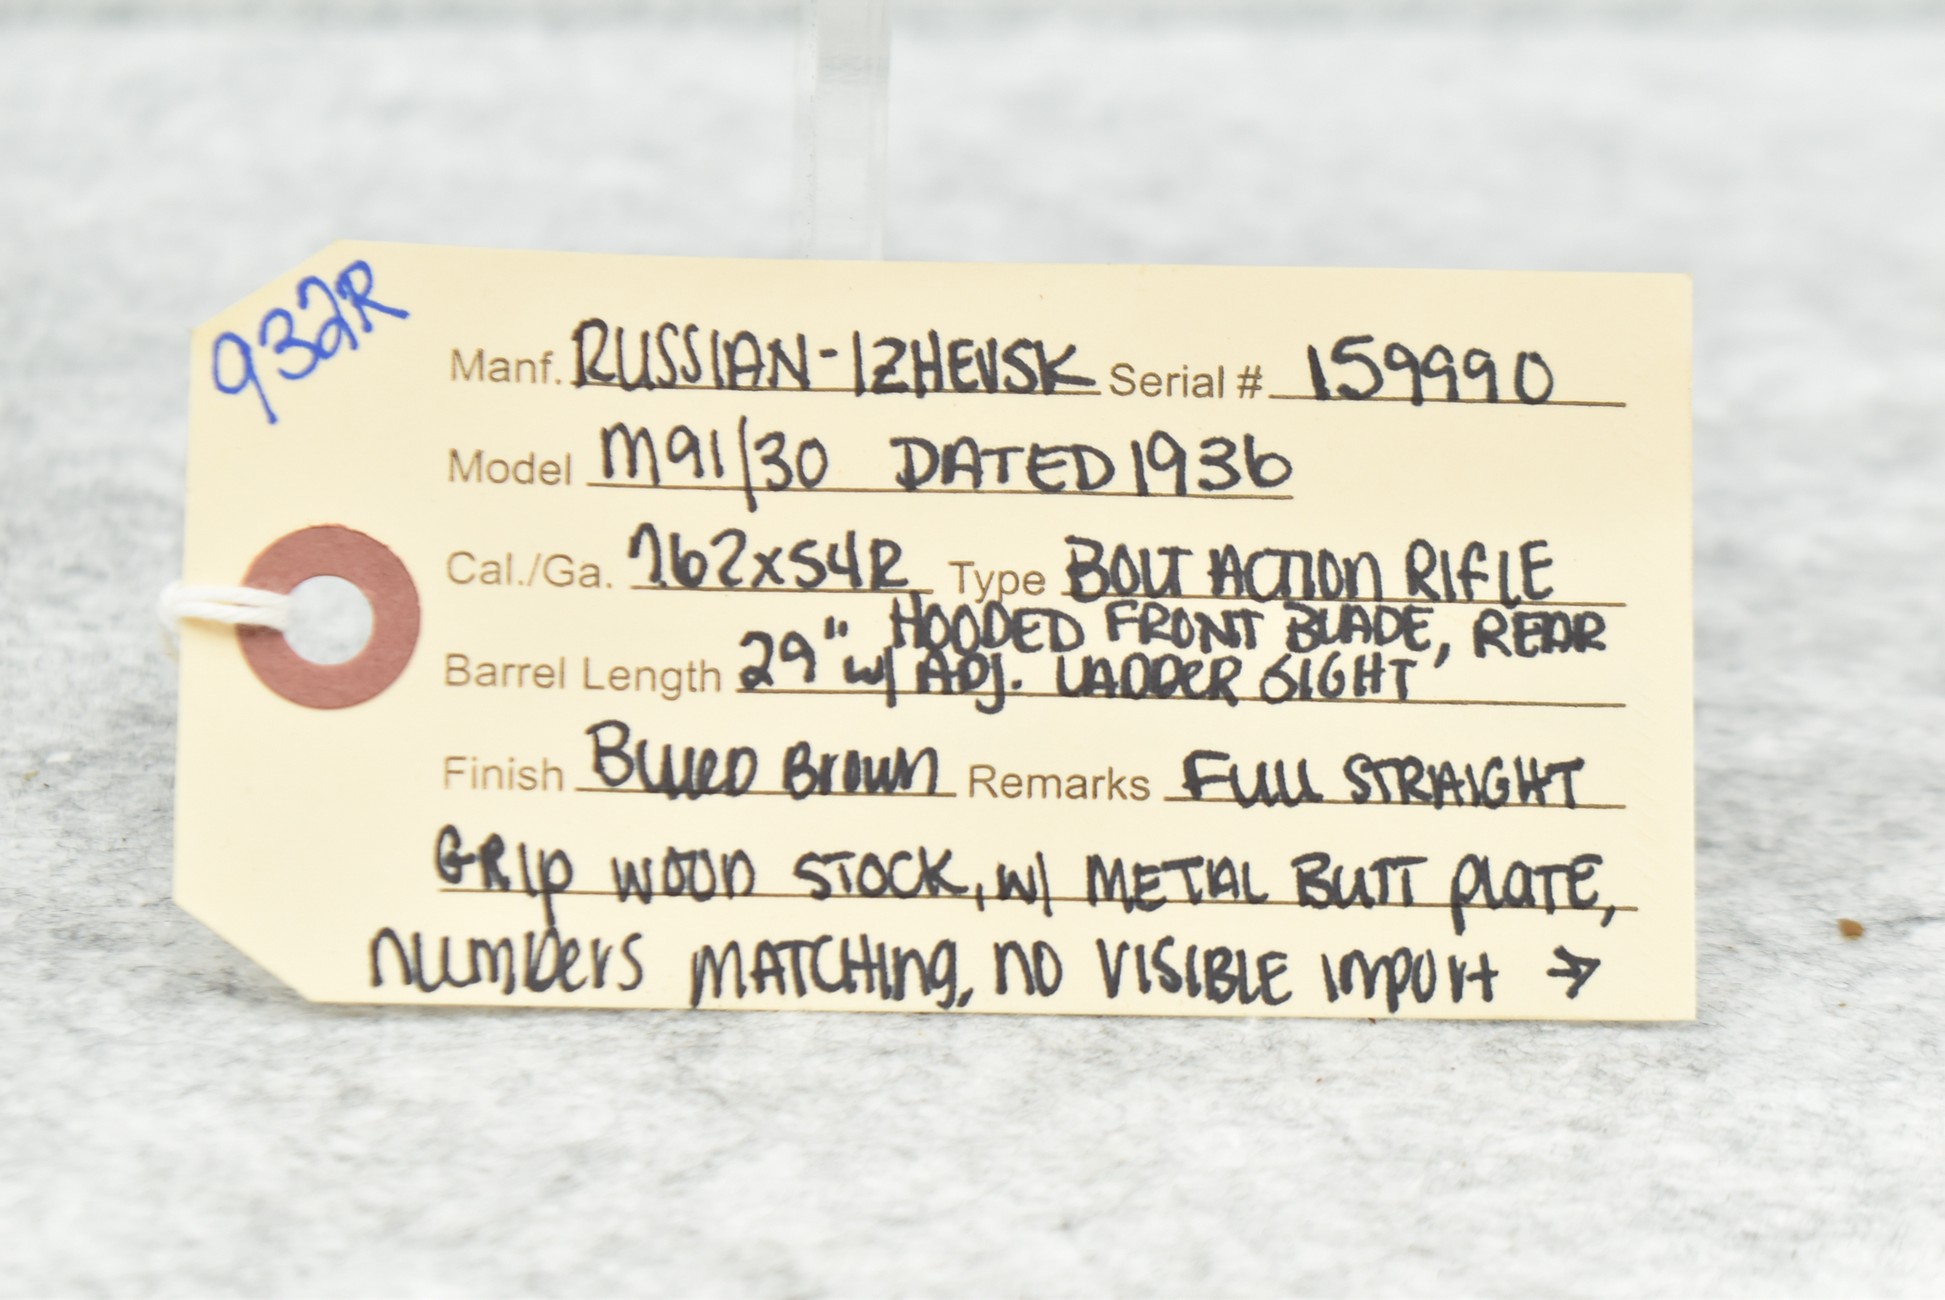 932R
Manf. RUSSIAN-IZHEVSK Serial # 159990
Model M91/30 DATED 1936
Cal./Ga. 762x54R Type BOLT ACTION RIFLE
HOODED FRONT BLADE, REAR
Barrel Length 29" w/ ADJ. LADDER SIGHT
Finish BLUED BROWN Remarks FULL STRAIGHT
GRIP WOOD STOCK, W/ METAL BUTT PLATE,
NUMBERS MATCHING, NO VISIBLE IMPORT →